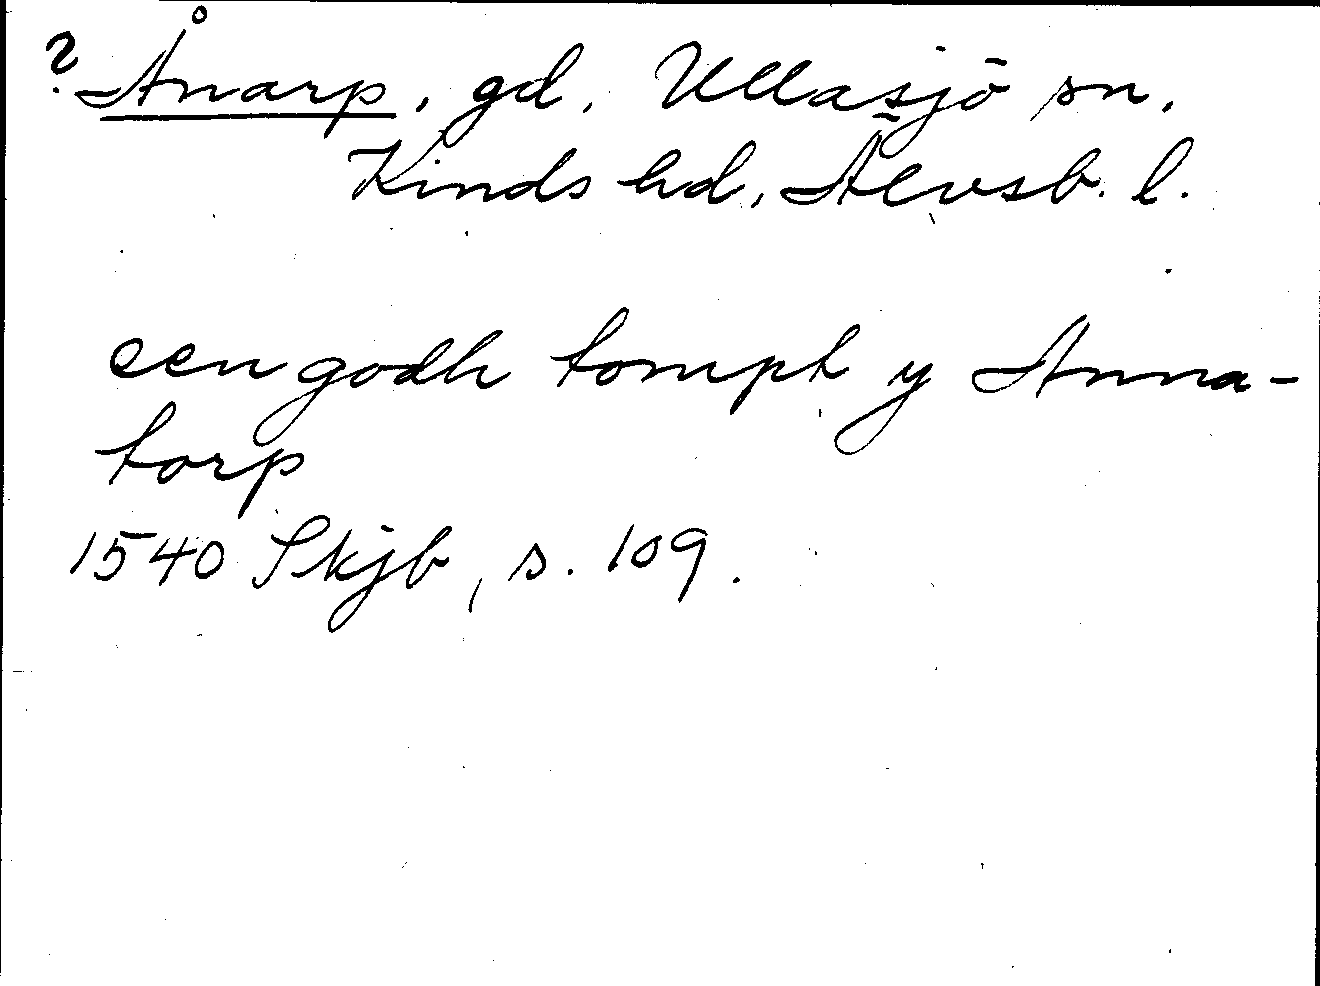 ? Ånarp, gd, Ullasjö sn,
Kinds hd, Älvsb. l.
een godh tompt y Anna-
torp
1540 Skjb, s. 109.